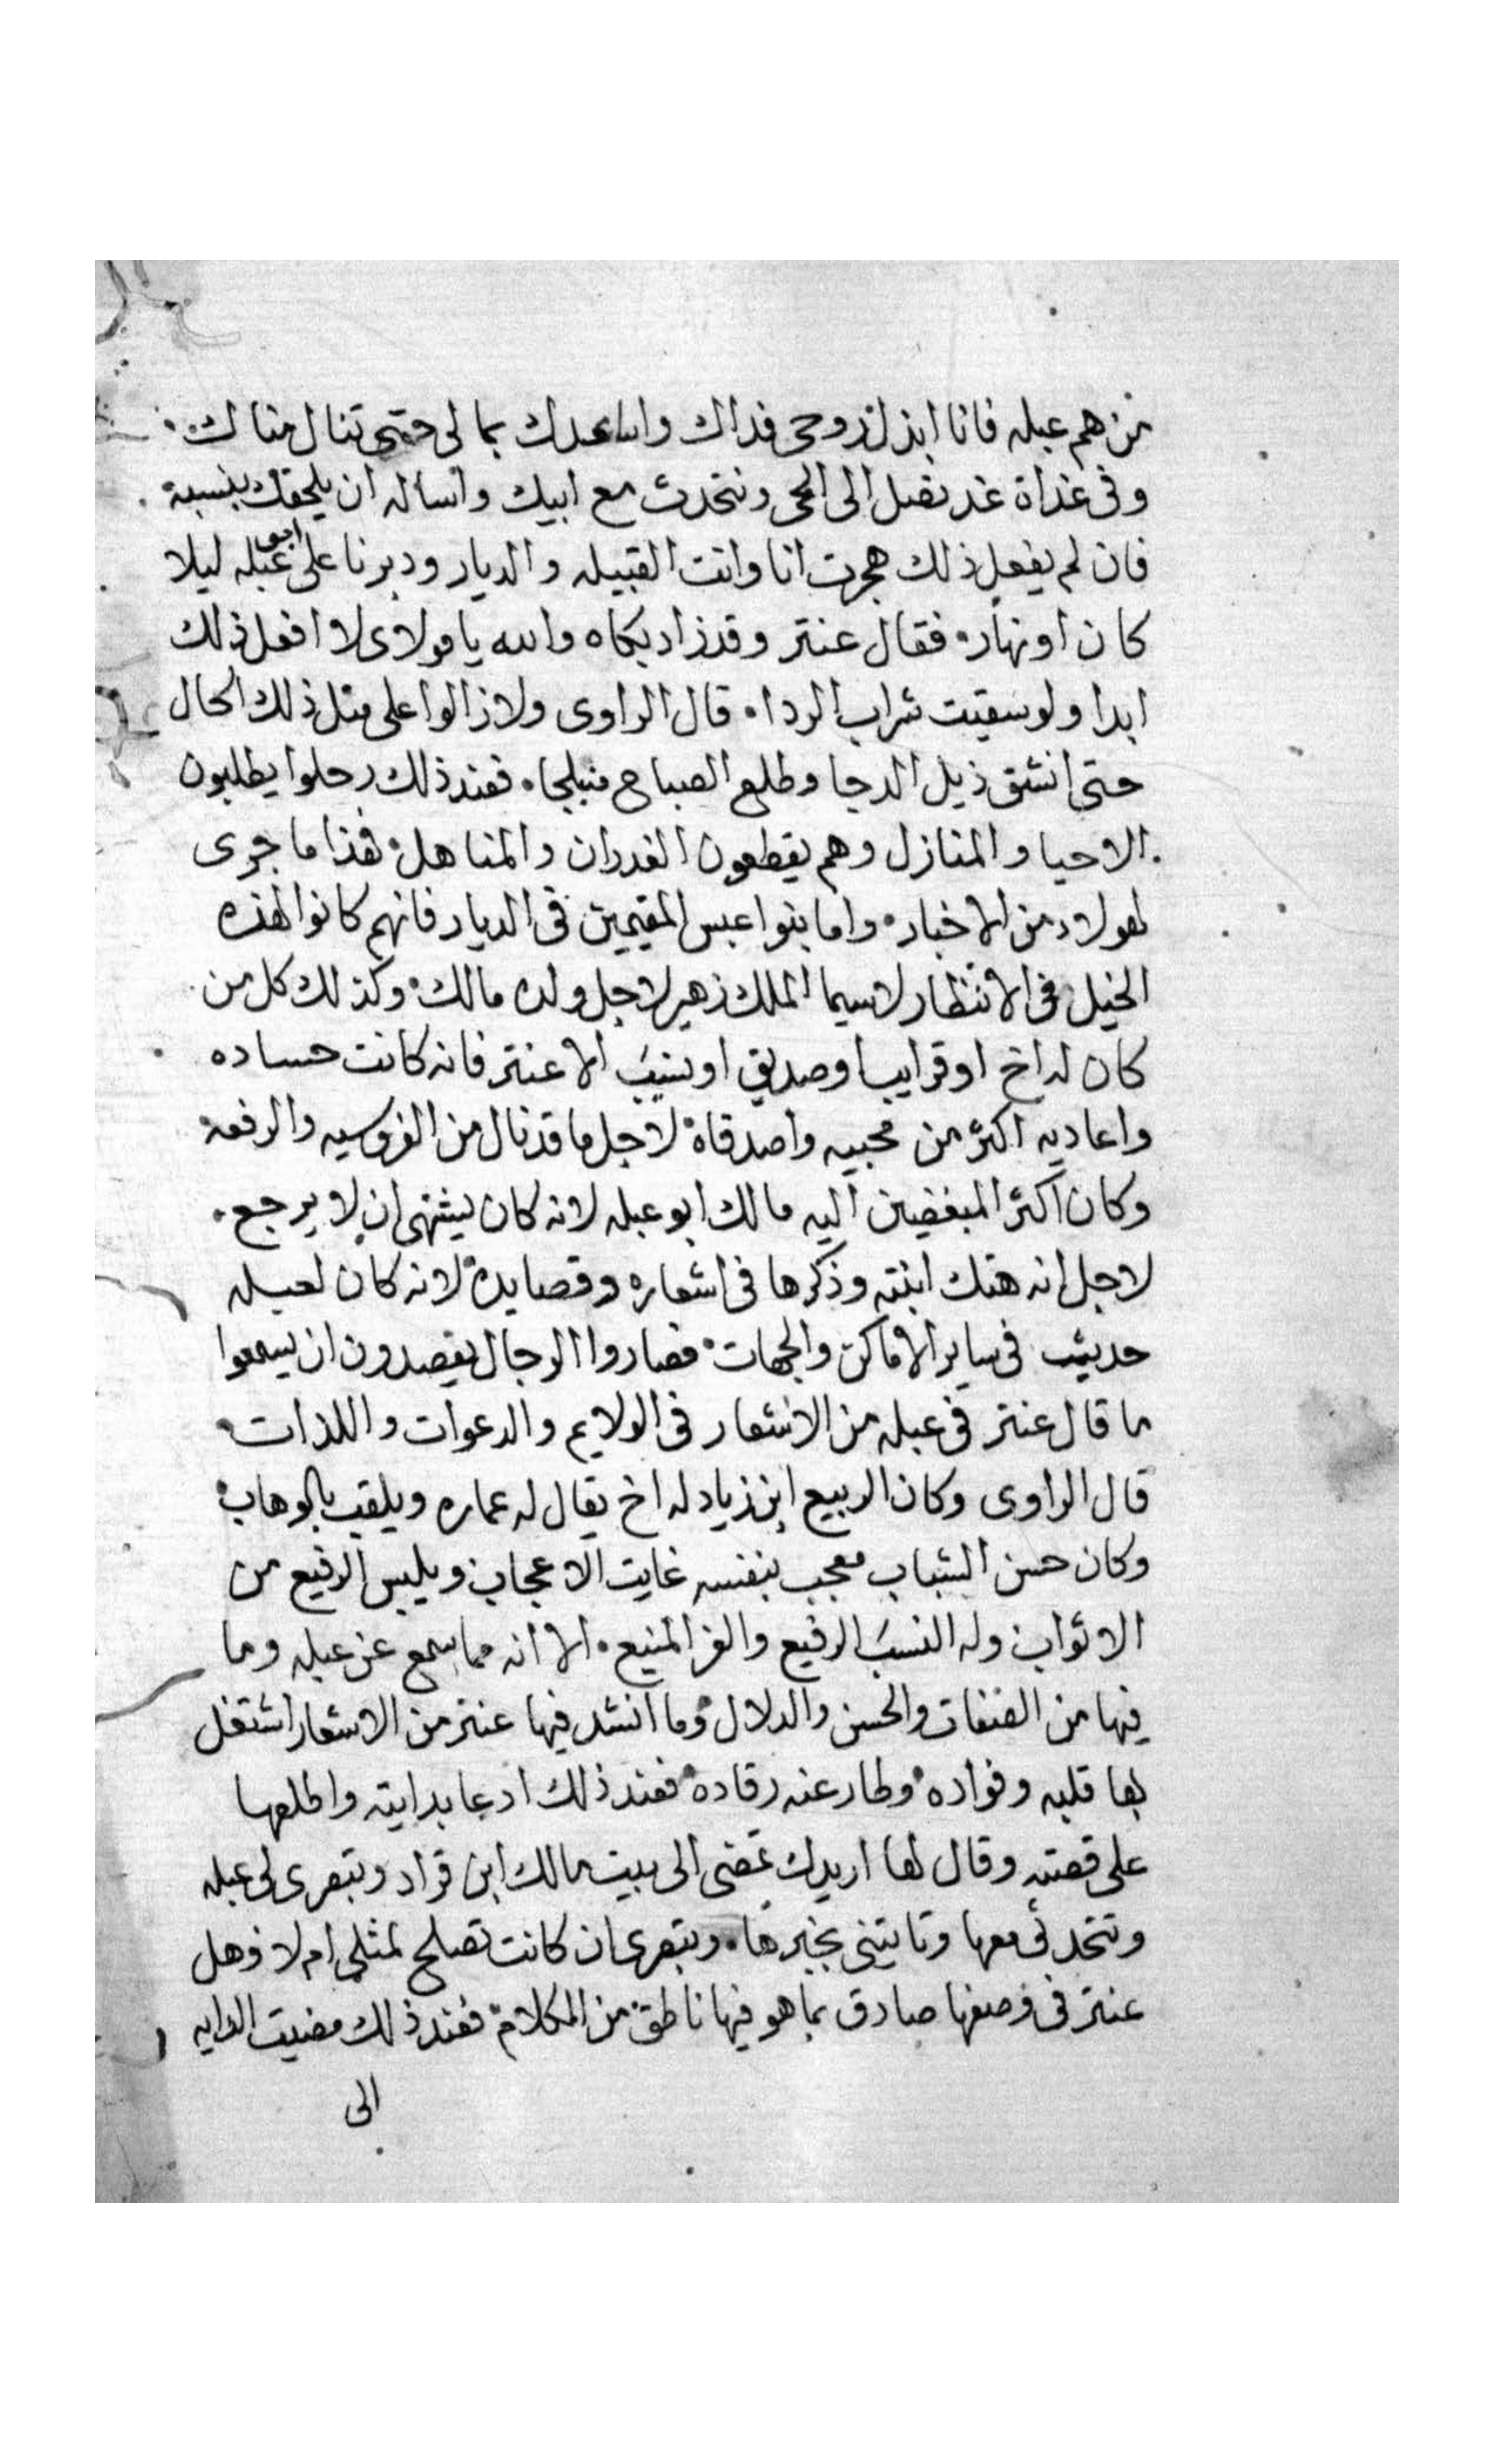 من هم عبله فانا ابذل روحي فداك واساعدك بمالى حتى تنال مناك
وفى غداة غد نصل الى الحي ونتحدث مع ابيك واساله ان يلحقك بنسبة
فان لم يفعل ذلك هجرت انا وانت القبيله والديار ودبرنا على ابو عبله ليلا
كان او نهار فقال عنتر وقد زاد بكاه والله يا مولاى لا افعل ذلك
ابدا ولو سقيت شراب الردا قال الراوى ولا زالوا على مثل ذلك الحال
حتى انشق ذيل الدجا وطلع الصباح منبلجا فعند ذلك رحلوا يطلبون
الاحيا والمنازل وهم يقطعون الغدران والمناهل هذا ما جرى
لهولاء من الاخبار واما بنوا عبس المقيمين فى الديار فانهم كانوا لهذه
الخيل فى الانتظار لاسيما الملك زهير لاجل ولده مالك وكذلك كل من
كان له اخ او قرايب او صديق او نسيب الا عنتر فانه كانت حساده
واعاديه اكثر من محبيه واصدقاه لاجل ما قد نال من الفروسيه والرفعة
وكان اكثر المبغضين اليه مالك ابو عبله لانه كان يشتهى ان لا يرجع
لاجل انه هتك ابنته وذكرها فى اشعاره وقصايده لانه كان لعبله
حديث فى ساير الاماكن والجهات فصاروا الرجال يقصدون ان يسمعوا
ما قال عنتر فى عبله من الاشعار فى الولايم والدعوات واللذات
قال الراوى وكان الربيع ابن زياد له اخ يقال له عماره ويلقب بالوهاب
وكان حسن الشباب معجب بنفسه غايت الاعجاب ويلبس الرفيع من
الاثواب وله النسب الرفيع والعز المنيع الا انه مما سمع عن عبله وما
فيها من الصفات والحسن والدلال وما انشد فيها عنتر من الاشعار اشتغل
بها قلبه وفواده وطار عنه رقاده فعند ذلك ادعا بدايته واطلعها
على قصته وقال لها اريدك تمضى الى بيت مالك ابن قراد وتبصرى لى عبله
وتتحدثى معها وتاتينى بخبرها وتبصرى ان كانت تصلح لمثلى ام لا وهل
عنتر فى وصفها صادق بما هو فيها ناطق من الكلام فعند ذلك مضيت الدايه
الى